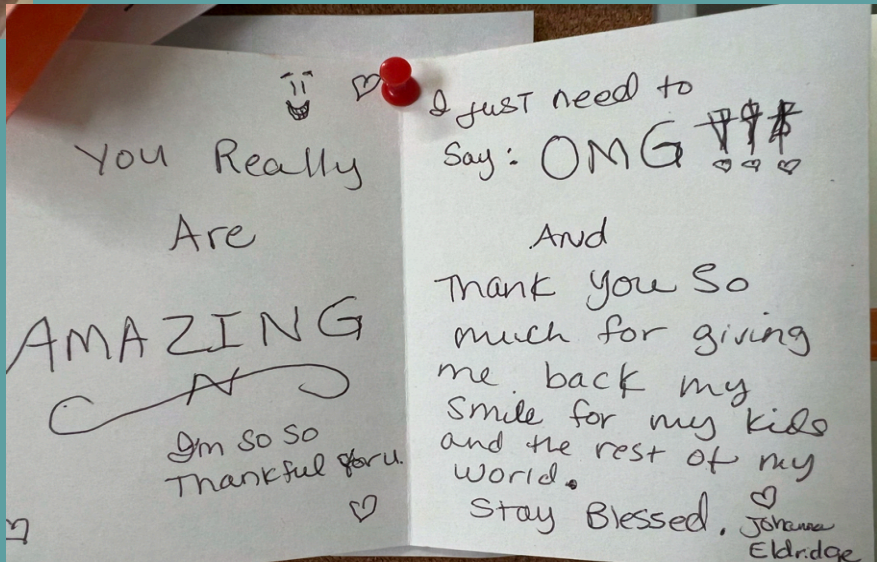 You Really
Are
AMAZING
I'm so so
Thankful for u.
I just need to
Say: OMG !!!
And
Thank you so
much for giving
me back my
smile for my kids
and the rest of my
world.
Stay Blessed.
Johanna
Eldridge